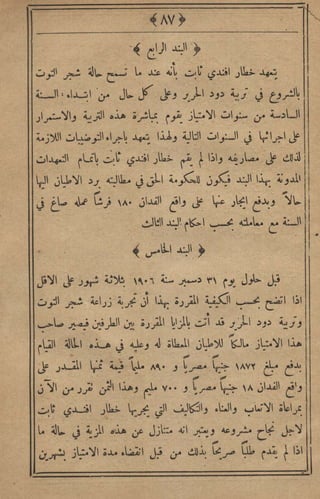 ﴿ ٨٧ ﴾
﴿ البند الرابع ﴾
يتعهد خطار افندي ثابت بأنه عند ما تسمح حالة شجر التوت
بالشروع في تربية دود الحرير وعلى كل حال من ابتداء السنة
السادسة من سنوات الامتياز يقوم بمباشرة هذه التربية والاستمرار
على اجرائها في السنوات التالية ولهذا يتعهد باجراء التوضيبات اللازمة
لذلك على مصاريفه واذا لم يقم خطار افندي ثابت باتمام التعهدات
المدونة بهذا البند فيكون للحكومة الحق في مطالبته برد الاطيان اليها
حالاً وبدفع ايجار عنها على واقع الفدان ١٨٠ قرشاً عمله صاغ في
السنة مع معاملته بحسب احكام البند الثالث
﴿ البند الخامس ﴾
قبل حلول يوم ٣١ دسمبر سنة ١٩٠٦ بثلاثة شهور على الاقل
اذا اتضح بحسب الكيفية المقررة بهذا أن تجربة زراعة شجر التوت
وتربية دود الحرير قد أتت بالمزايا المقررة بين الطرفين فيصير صاحب
هذا الامتياز مالكاً للاطيان المعطاة له وعليه في هذه الحالة القيام
بدفع مبلغ ١٨٧٢ جنيهاً مصرياً و ٨٩٠ مليماً قيمة ثمنها المقدر على
واقع الفدان ١٨ جنيهاً مصرياً و ٧٠٠ مليم وهذا الثمن تقرر من الآن
بمراعاة الاتعاب والعناء والتكاليف التي يجريها خطار افندي ثابت
لاجل نجاح مشروعه ويعتبر انه متنازل عن هذه المزية في حالة ما
اذا لم يقدم طلباً صريحاً بذلك من قبل انقضاء مدة الامتياز بشهرين